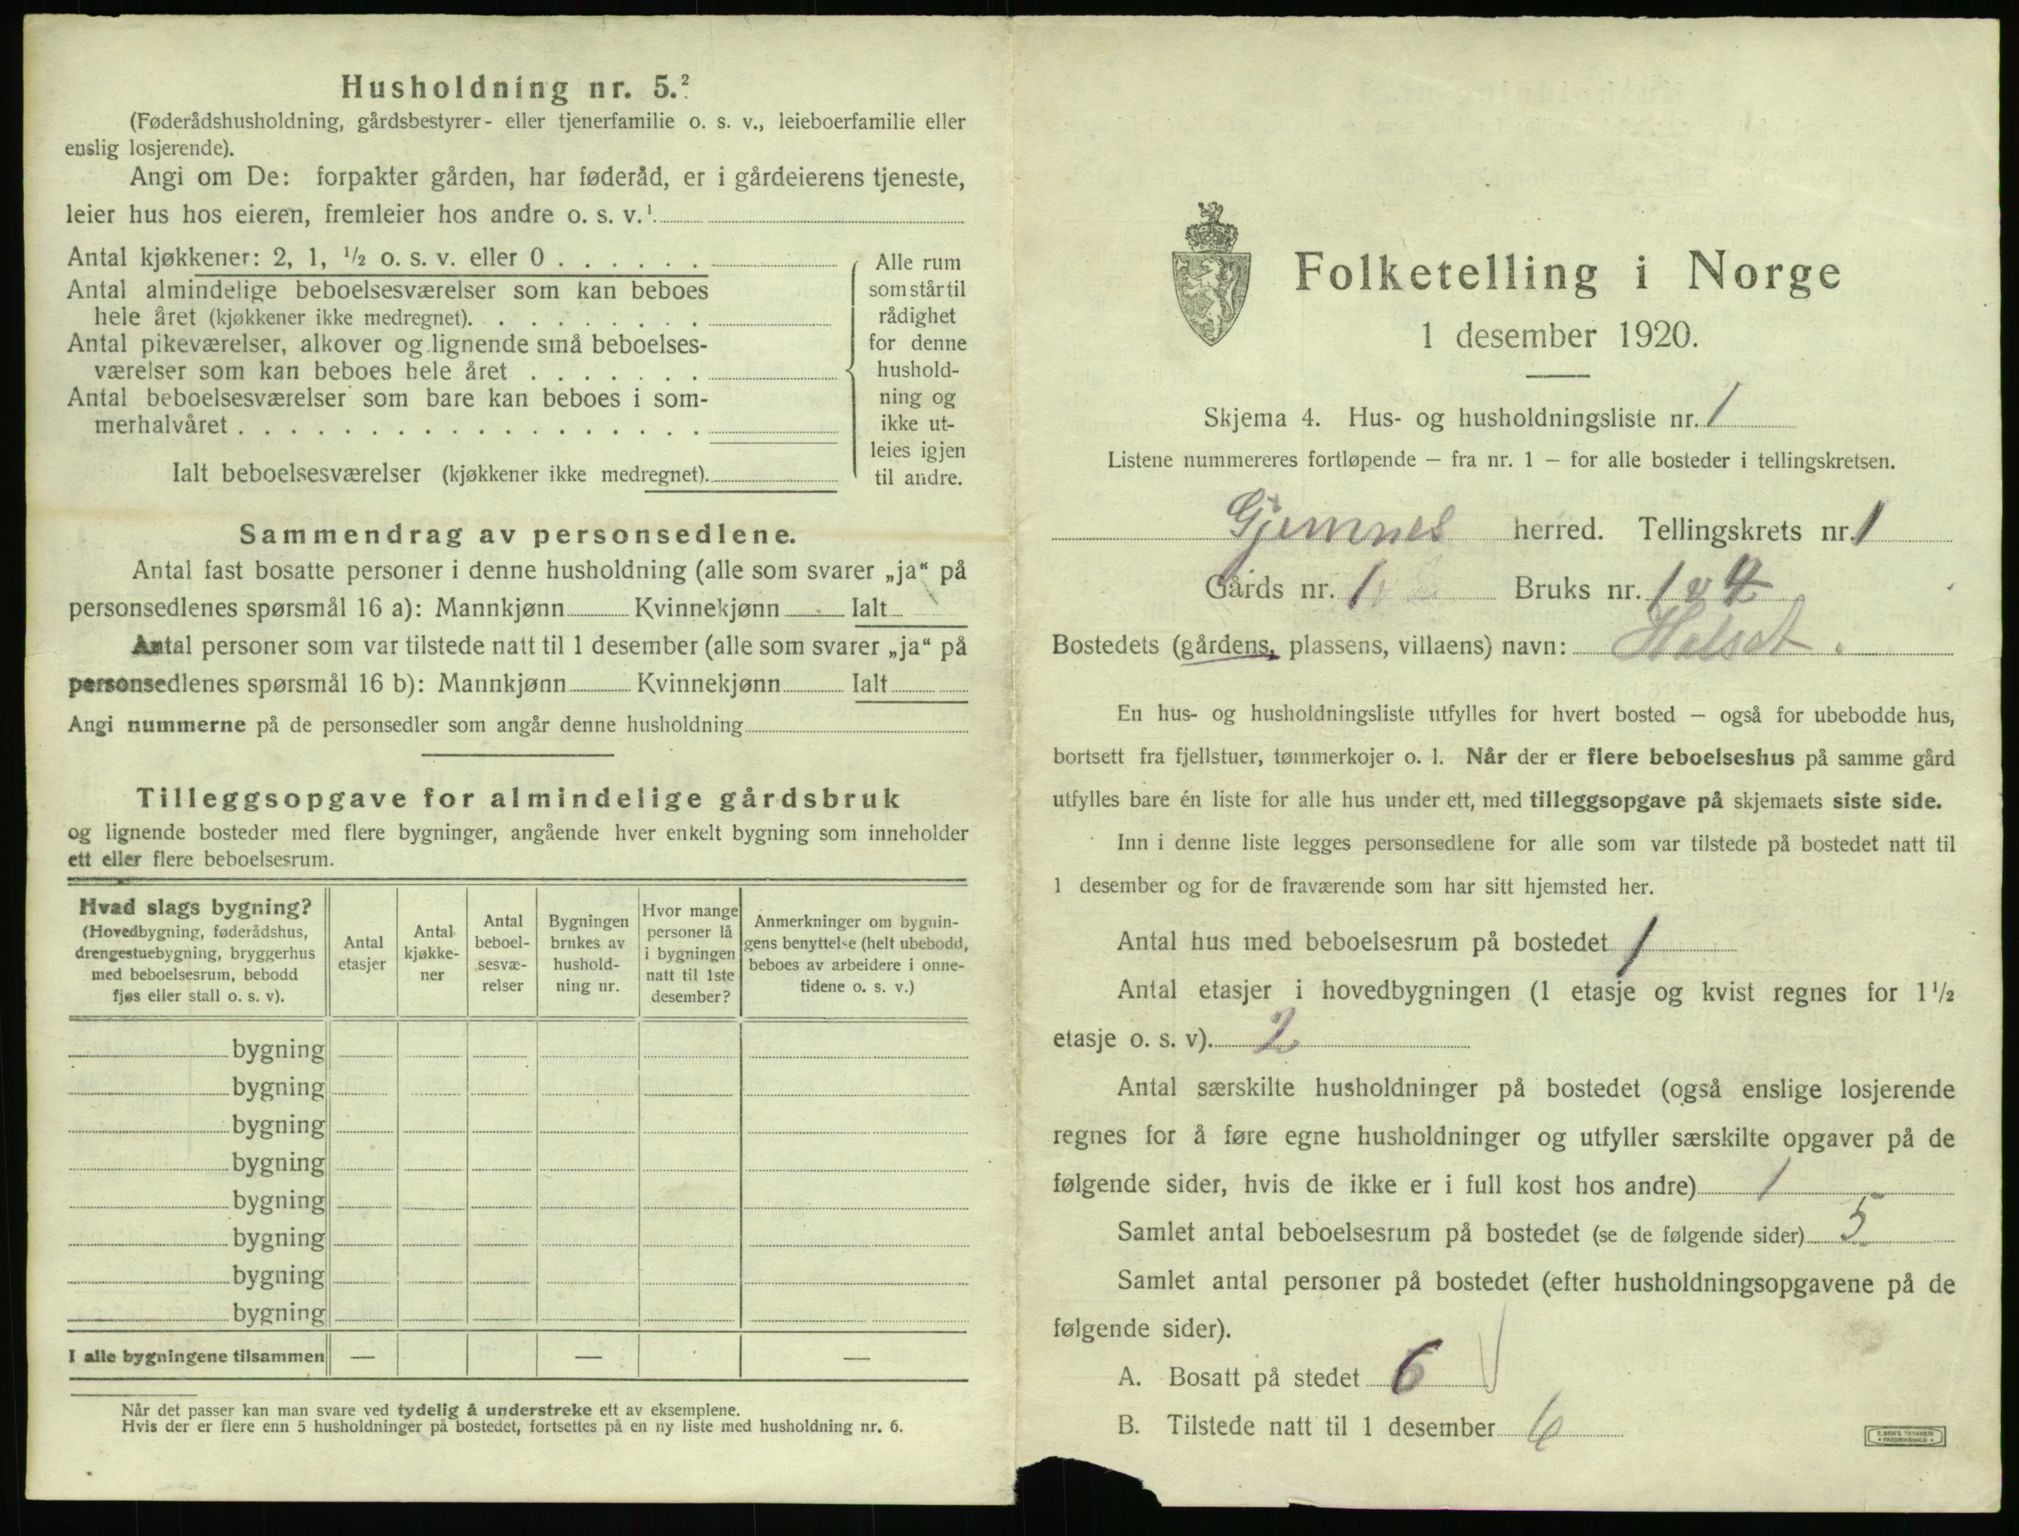 Husholdning nr. 5.²
(Føderådshusholdning, gårdsbestyrer- eller tjenerfamilie o. s. v., leieboerfamilie eller
enslig losjerende).
Angi om De: forpakter gården, har føderåd, er i gårdeierens tjeneste,
leier hus hos eieren, fremleier hos andre o. s. v.¹
Antal kjøkkener: 2, 1, ½ o. s. v. eller 0 . . . . . .
Antal almindelige beboelsesværelser som kan beboes
hele året (kjøkkener ikke medregnet). . . . . . . . .
Antal pikeværelser, alkover og lignende små beboelses-
værelser som kan beboes hele året . . . . . . .
Antal beboelsesværelser som bare kan beboes i som-
merhalvåret . . . . . . . . . . . . . . . . . .
Ialt beboelsesværelser (kjøkkener ikke medregnet).
Alle rum
som står til
rådighet
for denne
hushold-
ning og
ikke ut-
leies igjen
til andre.
Sammendrag av personsedlene.
Antal fast bosatte personer i denne husholdning (alle som svarer „ja“ på
personsedlenes spørsmål 16 a): Mannkjønn Kvinnekjønn Ialt
Antal personer som var tilstede natt til 1 desember (alle som svarer „ja“ på
personsedlenes spørsmål 16 b): Mannkjønn Kvinnekjønn Ialt
Angi nummerne på de personsedler som angår denne husholdning
Tilleggsopgave for almindelige gårdsbruk
og lignende bosteder med flere bygninger, angående hver enkelt bygning som inneholder
ett eller flere beboelsesrum.
Hvad slags bygning?
(Hovedbygning, føderådshus,
drengestuebygning, bryggerhus
med beboelsesrum, bebodd
fjøs eller stall o. s. v).
Antal
etasjer
Antal
kjøkke-
ner
Antal
beboel-
sesvæ-
relser
Bygningen
brukes av
hushold-
ning nr.
Hvor mange
personer lå
i bygningen
natt til 1ste
desember?
Anmerkninger om bygnin-
gens benyttelse (helt ubebodd,
beboes av arbeidere i onne-
tidene o. s. v.)
bygning
bygning
bygning
bygning
bygning
bygning
bygning
bygning
I alle bygningene tilsammen — — —
Når det passer kan man svare ved tydelig å understreke ett av eksemplene.
Hvis der er flere enn 5 husholdninger på bostedet, fortsettes på en ny liste med husholdning nr. 6.
Folketelling i Norge
1 desember 1920.
Skjema 4. Hus- og husholdningsliste nr. 1
Listene nummereres fortløpende — fra nr. 1 — for alle bosteder i tellingskretsen.
Gjemnes herred. Tellingskrets nr. 1
Gårds nr. 1 Bruks nr. 1 & 4
Bostedets (gårdens, plassens, villaens) navn:
En hus- og husholdningsliste utfylles for hvert bosted — også for ubebodde hus,
bortsett fra fjellstuer, tømmerkojer o. l. Når der er flere beboelseshus på samme gård
utfylles bare én liste for alle hus under ett, med tilleggsopgave på skjemaets siste side.
Inn i denne liste legges personsedlene for alle som var tilstede på bostedet natt til
1 desember og for de fraværende som har sitt hjemsted her.
Antal hus med beboelsesrum på bostedet 1
Antal etasjer i hovedbygningen (1 etasje og kvist regnes for 1½
etasje o. s. v). 2
Antal særskilte husholdninger på bostedet (også enslige losjerende
regnes for å føre egne husholdninger og utfyller særskilte opgaver på de
følgende sider, hvis de ikke er i full kost hos andre) 1
Samlet antal beboelsesrum på bostedet (se de følgende sider) 5
Samlet antal personer på bostedet (efter husholdningsopgavene på de
følgende sider).
A. Bosatt på stedet 6
B. Tilstede natt til 1 desember 6
E. SEM'S TRYKKERI
• FREDRIKSHALD •